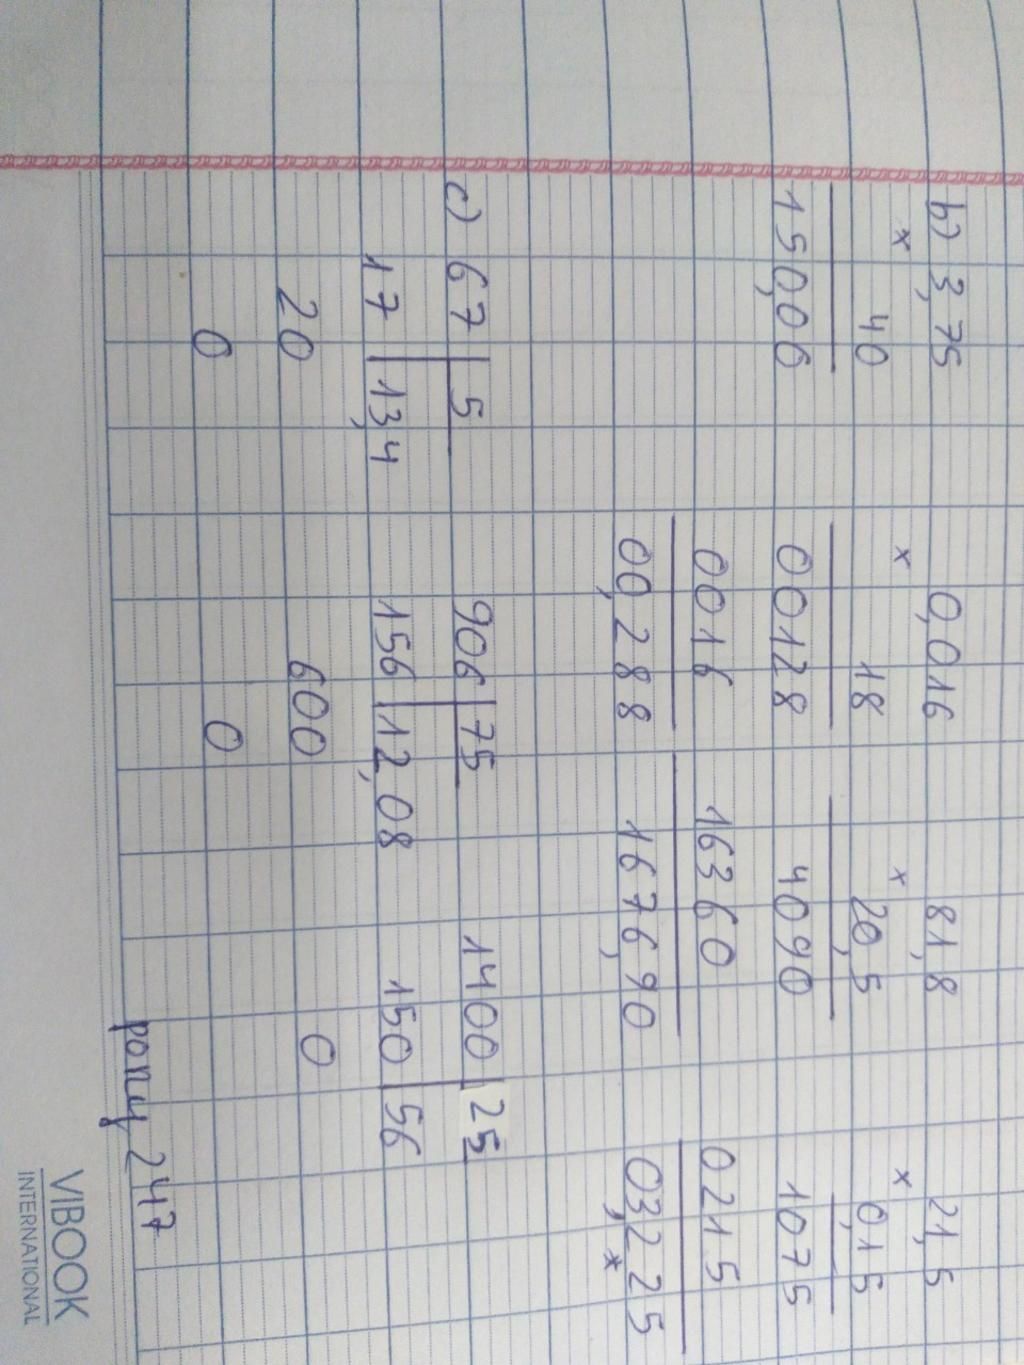 b) 3,75 0,016 81,8 21,5
x 40 x 18 x 20,5 x 0,15
150,00 00128 4090 1075
0016 16360 0215
00,288 1676,90 03,225
*
c) 67 5 906 75 1400 25
17 13,4 156 12,08 150 56
20 600 0
0 0
pony 247
VIBOOK
INTERNATIONAL